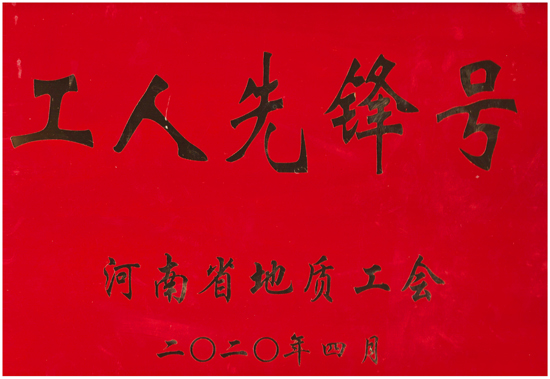 工人先锋号
河南省地质工会
二〇二〇年四月